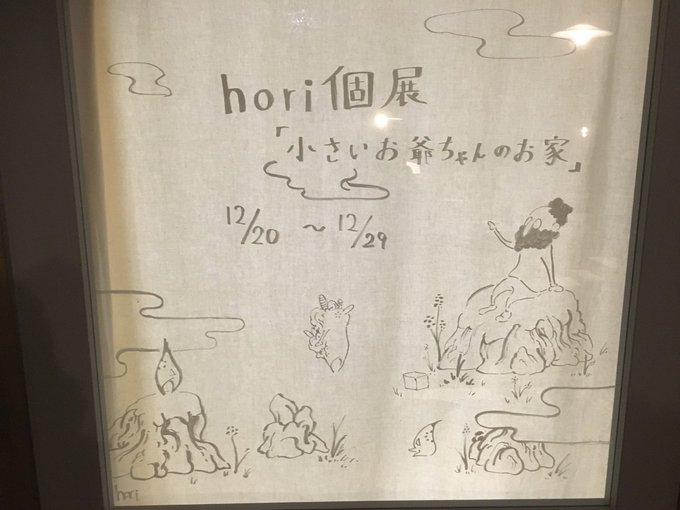 hori個展
「小さいお爺ちゃんのお家」
12/20 〜 12/29
hori